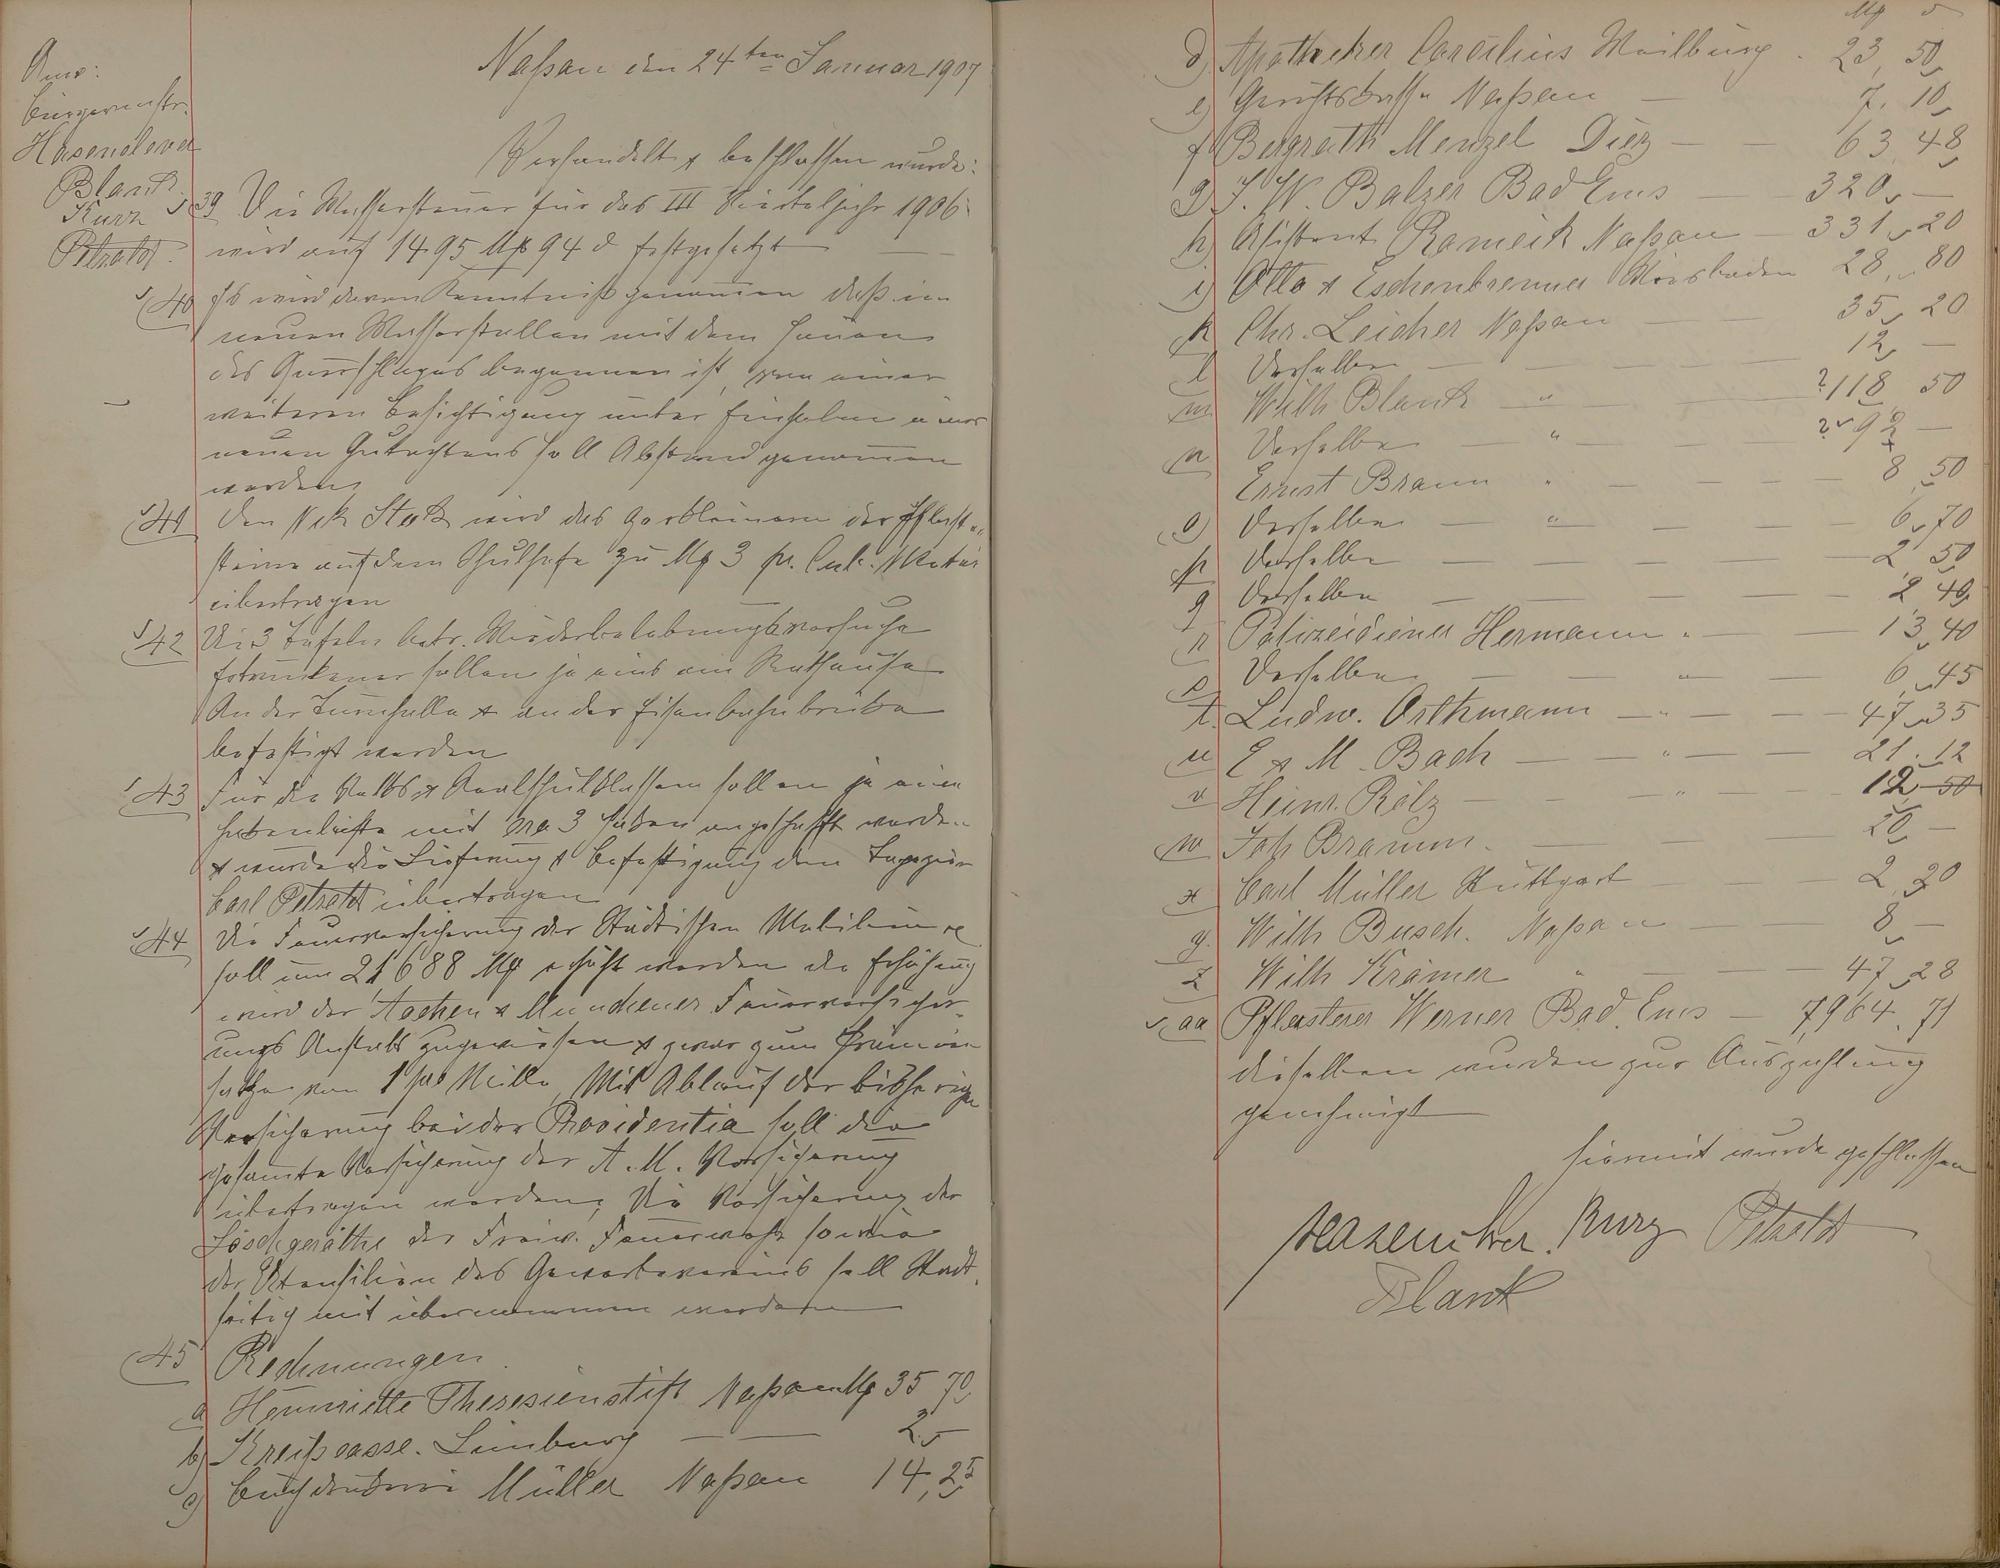 Naßau den 24ten Januar 1907
Anw:
Bürgermstr.
Hasenclever
Blank
Kurz
Petzoldt
Verhandelt & beschlossen wurde:
39 Die Wassersteuer für das III Vierteljahr 1906
wird auf 1495 M 94 d festgesetzt
40 Es wird davon Kenntniß genommen daß im
neuen Wasserstollen mit dem
des Querschlages begonnen ist, von einer
weiteren Besichtigung unter Einholen eines
neuen Gutachtens soll Abstand genommen
werden
41 Den Nik wird das Zerkleinern der Pflaster
steine auf dem Schulhofe zu M 3 pr. Cub. Meter
übertragen
42 Die 3 Tafeln betr. Wiederbelebungsversuche
Ertrunkener sollen je eins am Rathause
An der Turnhalle & an der Eisenbahnbrücke
befestigt werden
43 Für die Volks & Realschulklassen sollen je eine
Hakenleiste mit 3 Haken angeschafft werden
& wurde die Lieferung & Befestigung dem Tapezier
Carl Petzoldt übertragen
44 Die Feuerversicherung der Städtischen Mobilien
soll um 21688 M erhöht werden die Erhöhung
wird der Aachen & Münchener Feuerversicher-
ungs Anstalt zugewiesen & zwar zum Prämien
satze von 1 pro Mille, Mit Ablauf der bisherigen
Versicherung bei der Providentia soll die
gesamte Versicherung der A. M. Versicherung
übertragen werden, Die Versicherung der
Löschgeräthe der Freiw. Feuerwehr sowie
der Utensilien des Gewerbevereins soll Stadt
seitig mit übernommen werden
45 Rechnungen
a Henriette Theresienstift Naßau M 35 70
b) Kreißcasse. Limburg — — 2 —
c) Buchdruckerei Müller Naßau 14, 25
M d
d) Apotheker Corcilius Weilburg . 23, 50
e) Gerichtskasse Naßau — 7. 10
f Bergrath Menzel Diez — — 63 48
g) J. W. Balzer Bad Ems — — 320 —
h) Assistent Rameik Naßau — 331 20
i) Otto & Eschenbrenner Wiesbaden 28, 80
k Chr. Leicher Naßau — — 35, 20
l Derselbe — — — — 12 —
m Wilh Blank — " — — ? 118 50
n Derselbe — " — — — ? 92 —
Ernst Braun " — — — 8 50
o) Derselbe — " — — — 6, 70
p Derselbe — — — — — 2 50
q Derselbe — — — — — 2 40
r Polizeidiener Hermann " — — 13, 40
s Derselbe — — " — — 6, 45
t. Ludw. Orthmann — " — — — 47, 35
u E & M. Bach — — " — — 21. 12
v Heinr. Rölz — — — " — — 12 50
w Joh Braun. — — — — 20 —
x Carl Müller Stuttgart — — 2, 20
y. Wilh Busch. Naßau — — 8 —
z Wilh Krämer " — — — 47, 28
aa Pflasterer Werner Bad Ems — 7,964. 71
dieselben wurden zur Auszahlung
genehmigt
hiermit wurde geschlossen
Hasenclever. Kurz Petzoldt
Blank